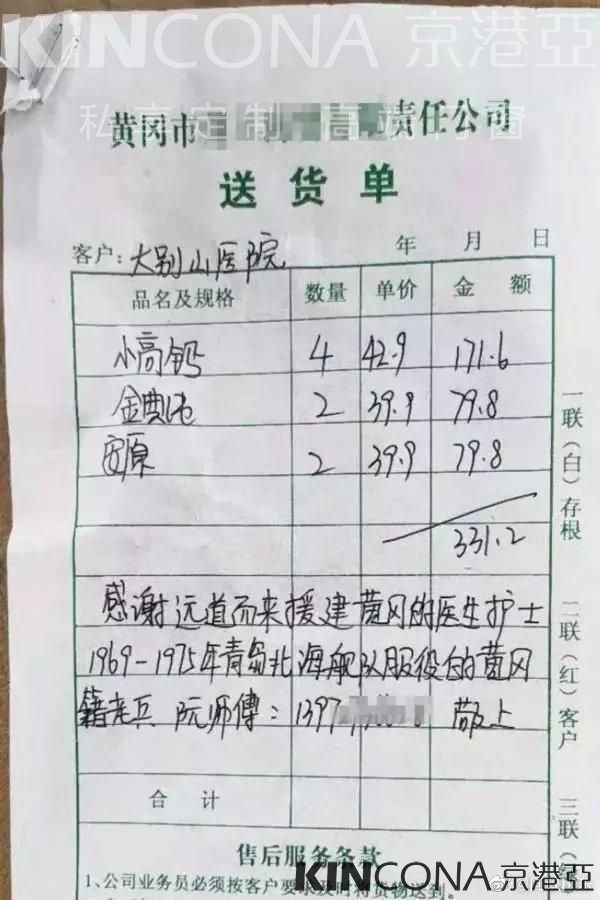 KINCONA 京港亞
私享定制 高端门窗
黄冈市 责任公司
送货单
客户: 大别山医院 年 月 日
品名及规格 数量 单价 金额
小高钙 4 42.9 171.6
金典 2 39.9 79.8
安原 2 39.9 79.8
331.2
感谢远道而来援建黄冈的医生护士
1969-1975年青岛北海舰队服役的黄冈
籍老兵 阮师傅: 1397 敬上
合计
售后服务条款
1、公司业务员必须按客户要求及时将货物送到。
一联(白)存根 二联(红)客户 三联
KINCONA 京港亞